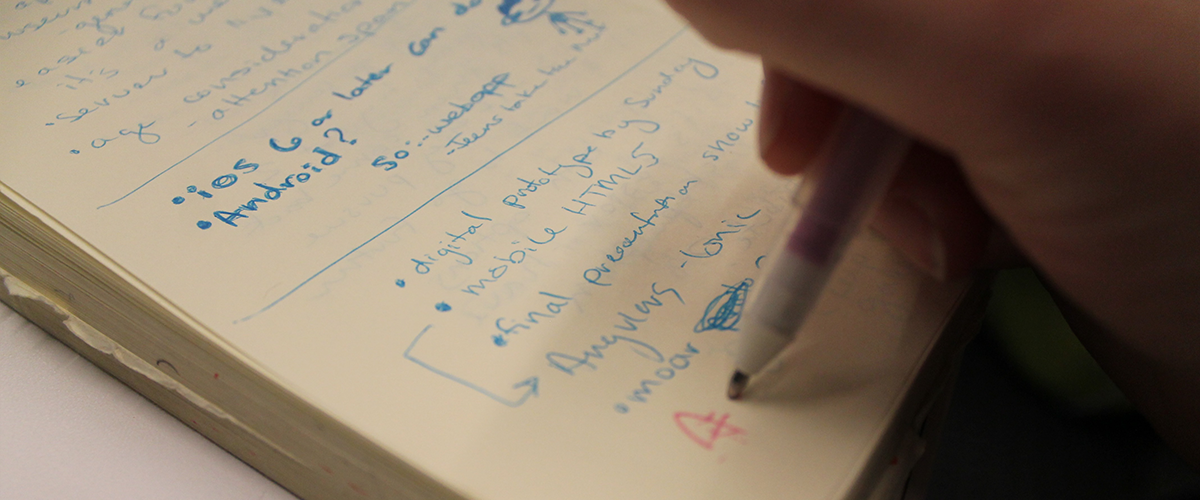 easier
it's a
• server to
• age consideration
- attention span
• iOS 6 or later can do
• Android?
so... webapp
- Teens take the
• digital prototype by Sunday
• mobile HTML5
• final presentation
Angularjs - Ionic
• moar
A